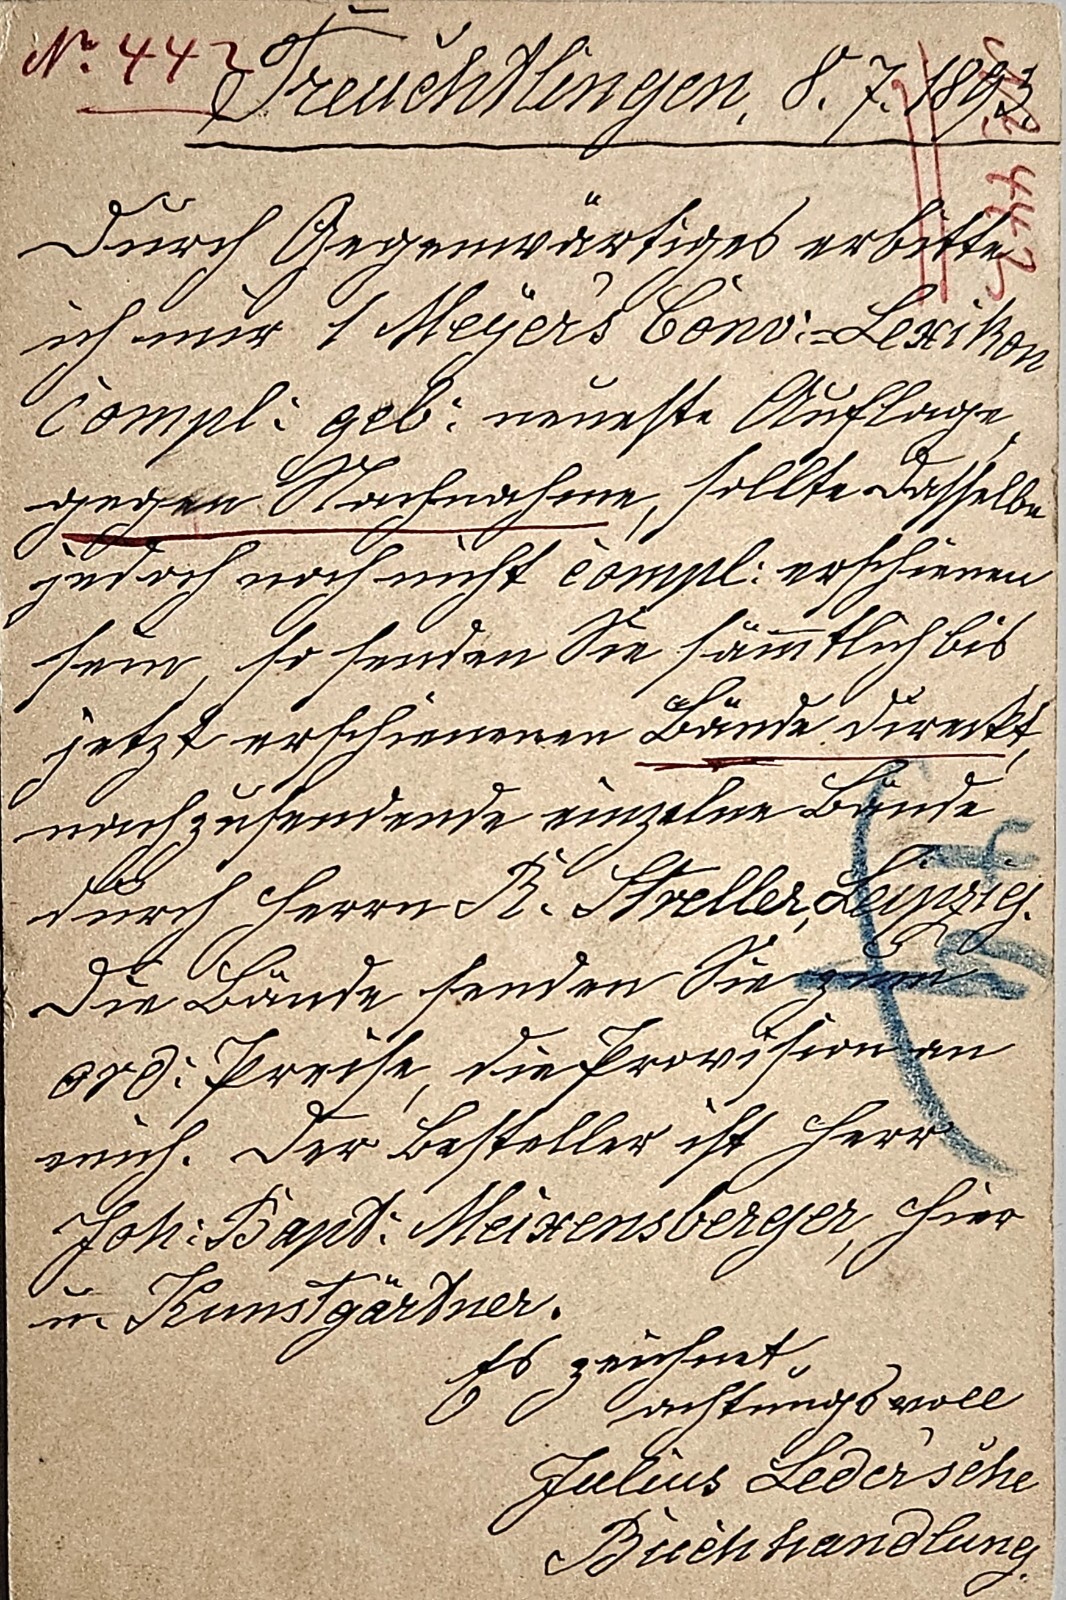 No. 442
Treuchtlingen, 8. 7. 1893.
No 442
Durch Gegenwärtiges erbitte
ich mir 1 Meyer's Conv:-Lexikon
compl: geb: neueste Auflage,
gegen Nachnahme, sollte dasselbe
jedoch noch nicht compl: erschienen
sein, so senden Sie sämmtlich bis
jetzt erschienenen Bände direkt,
nachzusendende einzelne Bände
durch Herrn R. Streller, Leipzig.
Die Bände senden Sie zum
ord: Preise, die Provision an
mich. Der Besteller ist Herr
Joh: Bapt: Meixensberger, hier
u. Kunstgärtner.
Es zeichnet
achtungsvoll
Julius Leder'sche
Buchhandlung.